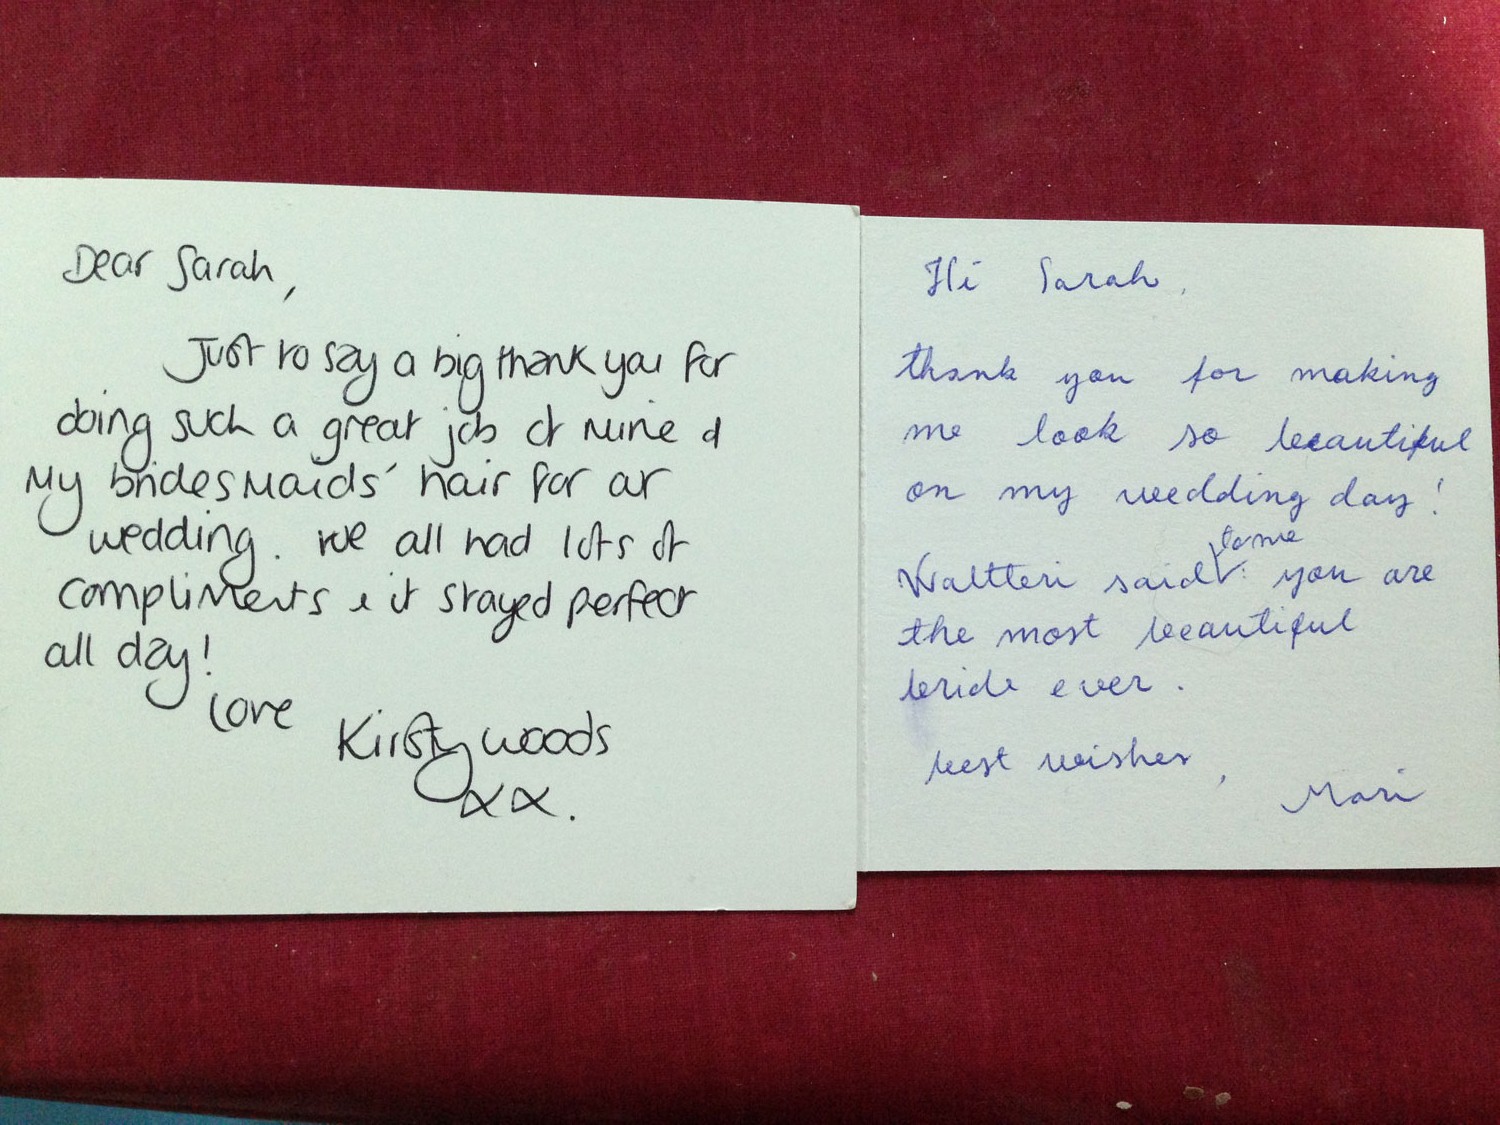 Dear Sarah,
Just to say a big thank you for
doing such a great job of mine &
My bridesmaids' hair for our
wedding. We all had lots of
compliments & it stayed perfect
all day!
love
Kirsty woods
xx.
Hi Sarah,
thank you for making
me look so beautiful
on my wedding day!
to me
Waltteri said: you are
the most beautiful
bride ever.
best wishes,
Mari